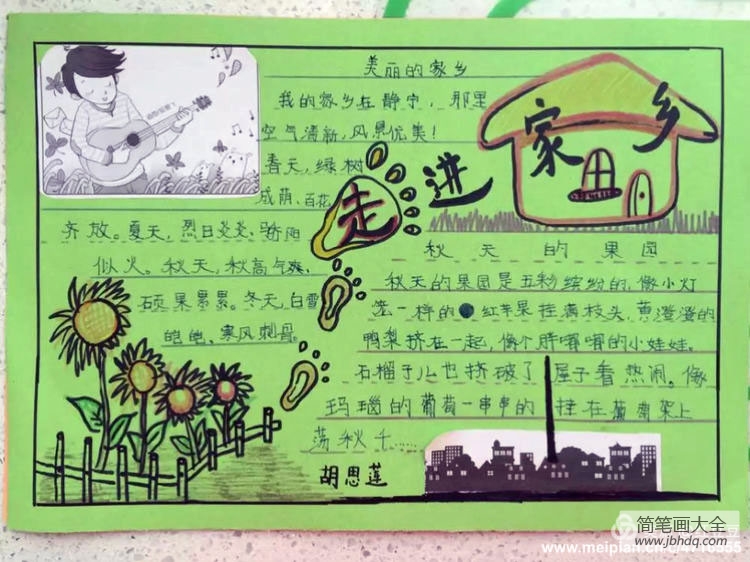 走进家乡
美丽的家乡
我的家乡在静宁，那里
空气清新，风景优美！
春天，绿树
成荫、百花
齐放。夏天，烈日炎炎、骄阳
似火。秋天，秋高气爽、
硕果累累。冬天，白雪
皑皑、寒风刺骨
秋天的果园
秋天的果园是五彩缤纷的，像小灯
笼一样的红苹果挂满枝头，黄澄澄的
鸭梨挤在一起，像个胖嘟嘟的小娃娃。
石榴子儿也挤破了屋子看热闹。像
玛瑙的葡萄一串串的挂在葡萄架上
荡秋千……
胡思莲
简笔画大全
www.jbhdq.com